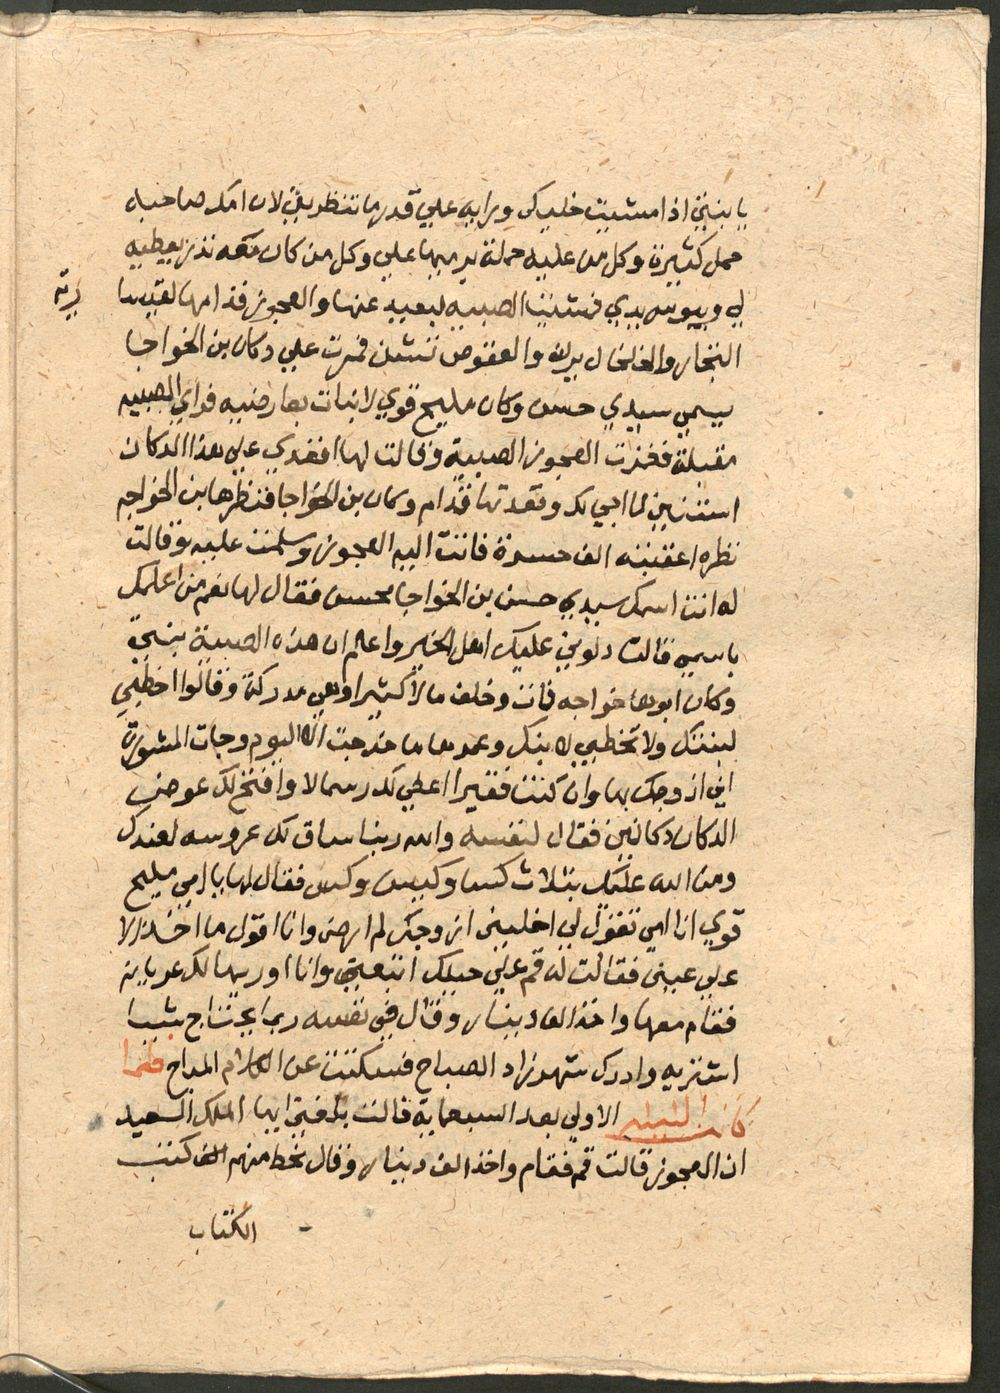 يا بنيتي اذا مشيت خليكي ورايه علي قدر ما تنظريني لان امك صاحبة
حمل كثيرة وكل من عليه حملة يرميها علي وكل من كان معه نذر يعطيه
لي ويبوس يدي فمشيت الصبيه لبعيد عنها والعجوز قدامها لقيسا
كرتة
التجار والخلخال يرن والعقوص تنشن فمرت علي دكان بن الخواجا
يسمي سيدي حسن وكان مليح قوي لا نبات بعارضيه فراي الصبيه
مقبلة فغمزت العجوز الصبية وقالت لها اقعدي علي هذا الدكان
استنيني لما اجي لك وقعدتها قدام دكان بن الخواجا فنظرها بن الخواجه
نظره اعقبته الف حسرة فاتت اليه العجوز وسلمت عليه وقالت
له انت اسمك سيدي حسن بن الخواجا محسن فقال لها نعم من اعلمك
باسمي قالت دلوني عليك اهل الخير واعلم ان هذه الصبية بنتي
وكان ابوها خواجه فات وخلف مالا كثيرا وهي مدركة وقالوا اخطبي
لبنتك ولا تخطبي لابنك وعمرها ما خرجت الا اليوم وجات المشورة
اني ازوجك بها وان كنت فقيرا اعطي لك رسمالا وافتح لك عوض
الدكان دكانين فقال لنفسه والله ربنا ساق لك عروسه لعندك
ومن الله عليك بتلات كسا وكيس وكس فقال لها يا امي مليح
قوي انا امي تقول لي اخليني ازوجك لم ارضي وانا اقول ما اخذ الا
علي عيني فقالت له قم علي حيلك اتبعيني وانا اوريها لك عريانه
فقام معها واخذ الف دينار وقال في نفسه ربما يحتاج شيا
اشتريه وادرك شهرزاد الصباح فسكتت عن الكلام المباح فلما
كانت الليلة الاولي بعد السبعماية قالت بلغني ايها الملك السعيد
ان العجوز قالت قم فقام واخذ الف دينار وقال نحط منهم الف كتب
الكتاب